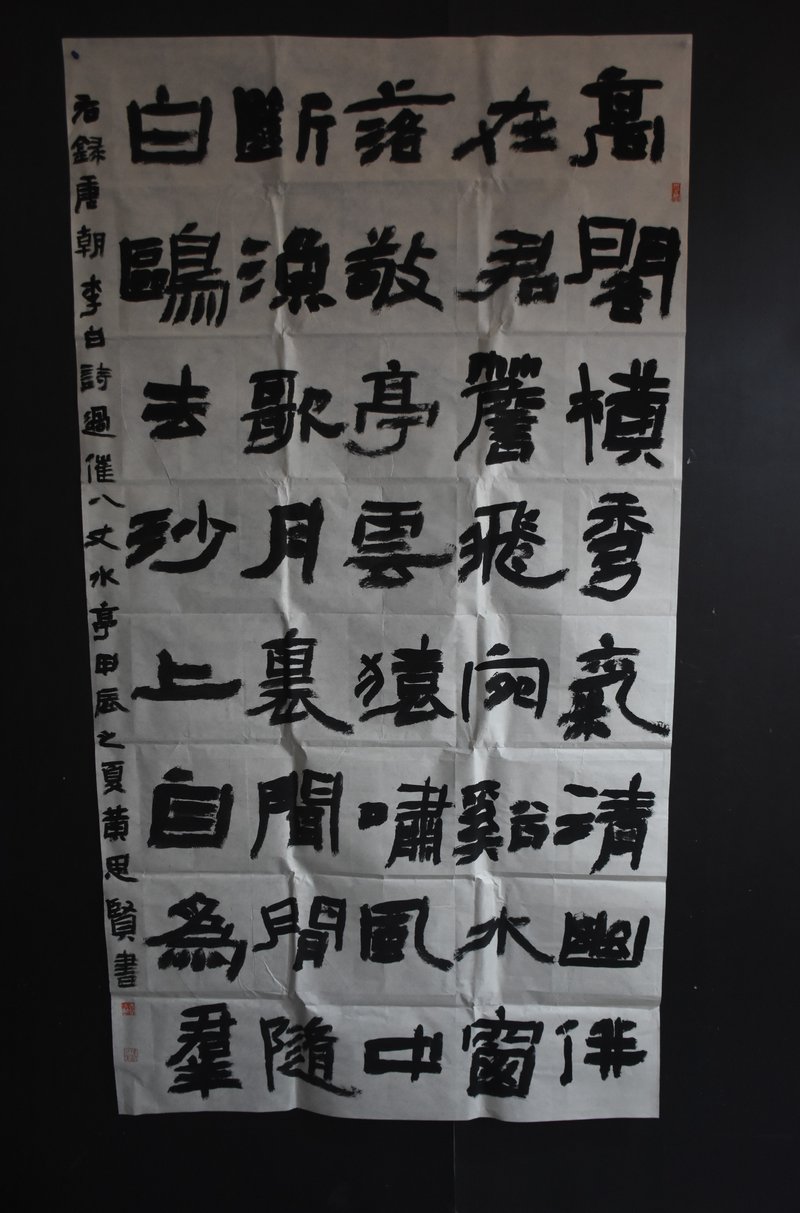 高閣橫秀氣清幽併
在君簷飛宛谿水窗
落敬亭雲猿嘯風中
斷漁歌月裏聞閒隨
白鷗去沙上自為羣
右錄唐朝李白詩過催八丈水亭甲辰之夏黄思賢書